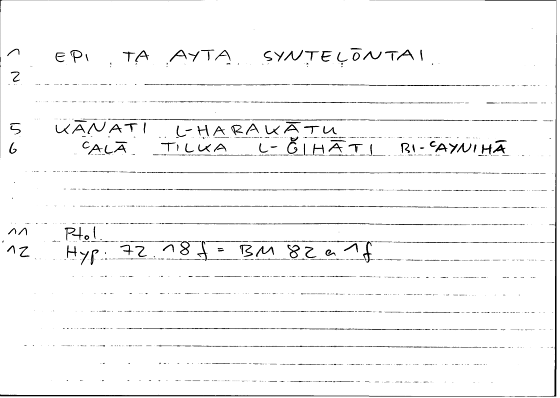 1 EPI TA AYTA SYNTELŌNTAI
2
5 KĀNATI L-HARAKĀTU
6 ᶜALĀ TILKA L-ĞIHĀTI BI-ᶜAYNIHĀ
11 Ptol.
12 Hyp. 72 18 f = BM 82 a 1 f